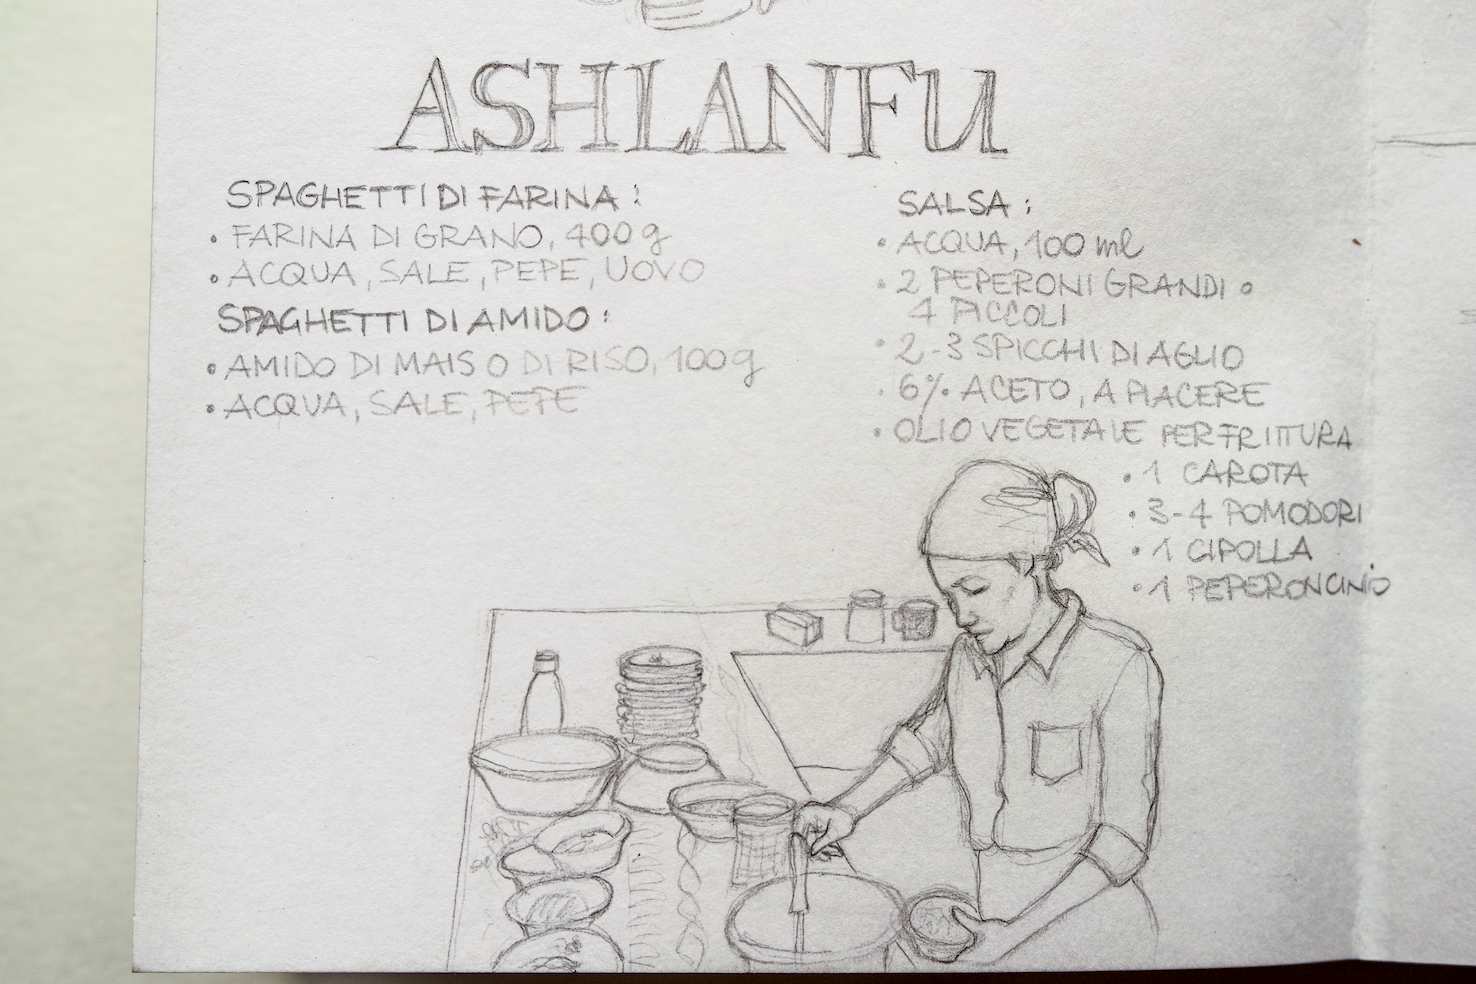 ASHLANFU
SPAGHETTI DI FARINA:
• FARINA DI GRANO, 400 g
• ACQUA, SALE, PEPE, UOVO
SPAGHETTI DI AMIDO:
• AMIDO DI MAIS O DI RISO, 100 g
• ACQUA, SALE, PEPE
SALSA:
• ACQUA, 100 ml
• 2 PEPERONI GRANDI o
4 PICCOLI
• 2-3 SPICCHI DI AGLIO
• 6% ACETO, A PIACERE
• OLIO VEGETALE PER FRITTURA
• 1 CAROTA
• 3-4 POMODORI
• 1 CIPOLLA
• 1 PEPERONCINO